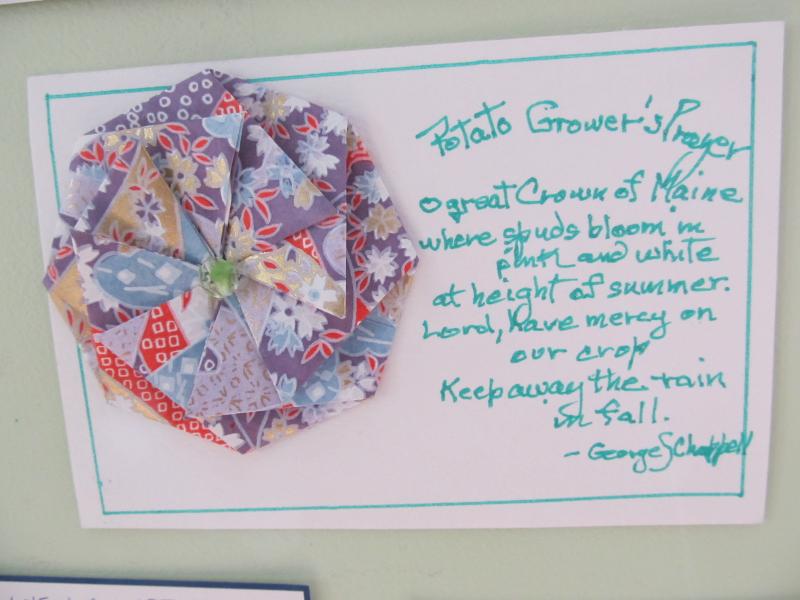 Potato Grower's Prayer
O great Crown of Maine
where spuds bloom in
pink and white
at height of summer.
Lord, have mercy on
our crop
Keep away the rain
in fall.
- George S Chappell